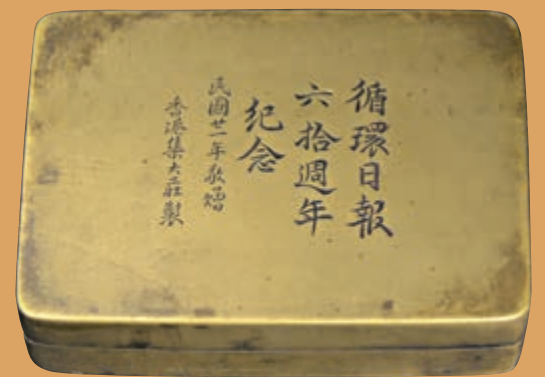 循環日報
六拾週年
紀念
民國廿一年敬贈
香港集大莊製